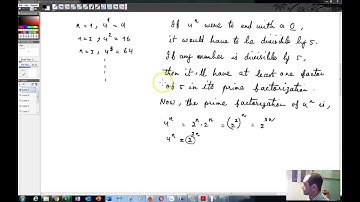 n=1, 4¹ = 4
n=2, 4² = 16
n=3, 4³ = 64
If 4ⁿ were to end with a 0,
it would have to be divisible by 5.
If any number is divisible by 5,
then it'll have at least one factor
of 5 in its prime factorization.
Now, the prime factorization of 4ⁿ is,
4ⁿ = 2ⁿ·2ⁿ = (2²)ⁿ = 2²ⁿ
4ⁿ = 2²ⁿ